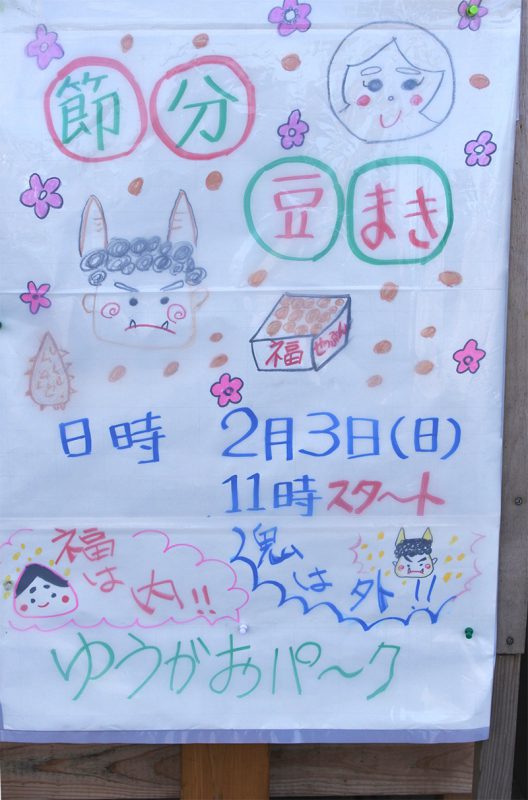 節分
豆まき
福 せつぶん
日時 2月3日(日)
11時スタ〜ト
福は内!!
鬼は外!!
ゆうがおパ〜ク